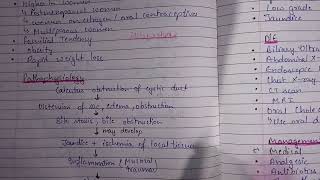 Higher in women
Postmenopausal women
women on estrogen / oral contraceptive
Multiparous women
Familial Tendency
obesity
Rapid weight loss
Pathophysiology
Calculus obstruction of cystic duct
Distension of GB, edema, obstruction
Bile stasis, bile obstruction
may develop
Jaundice + ischemia of local tissue
Inflammation (Mucosal
trauma)
Low grade
Jaundice
D/E
Biliary Ultra
Abdominal X-
Endoscopic
Chest X-ray
CT scan
MRI
Oral Chole
Management
Medical
Analgesic
Antibiotics